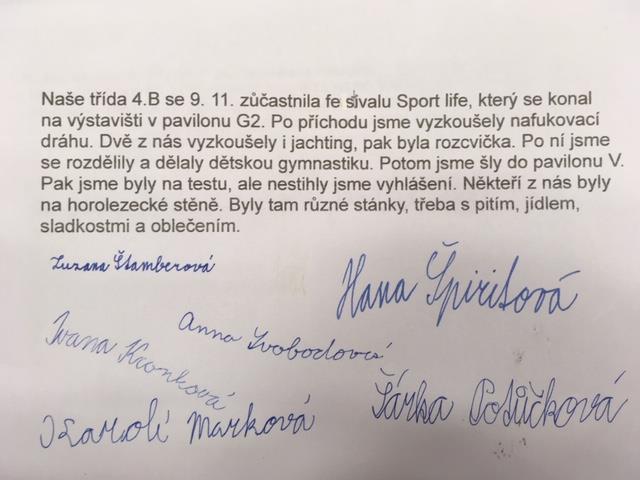 Naše třída 4.B se 9. 11. zůčastnila fe sivalu Sport life, který se konal
na výstavišti v pavilonu G2. Po příchodu jsme vyzkoušely nafukovací
dráhu. Dvě z nás vyzkoušely i jachting, pak byla rozcvička. Po ní jsme
se rozdělily a dělaly dětskou gymnastiku. Potom jsme šly do pavilonu V.
Pak jsme byly na testu, ale nestihly jsme vyhlášení. Někteří z nás byly
na horolezecké stěně. Byly tam různé stánky, třeba s pitím, jídlem,
sladkostmi a oblečením.
Zuzana Štamberová
Hana Špiritová
Anna Svobodová
Ivana Kronková
Šárka Potůčková
Karolí Marková